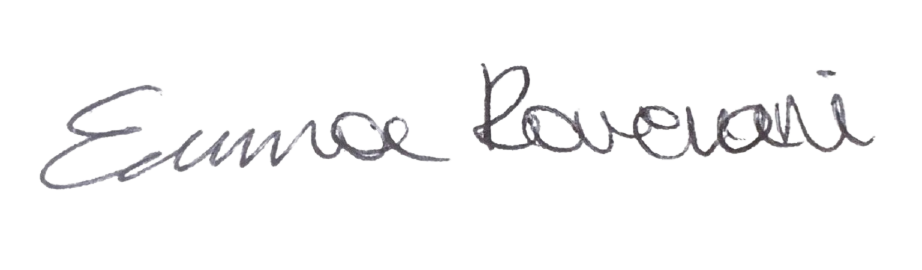 Emma Raverani